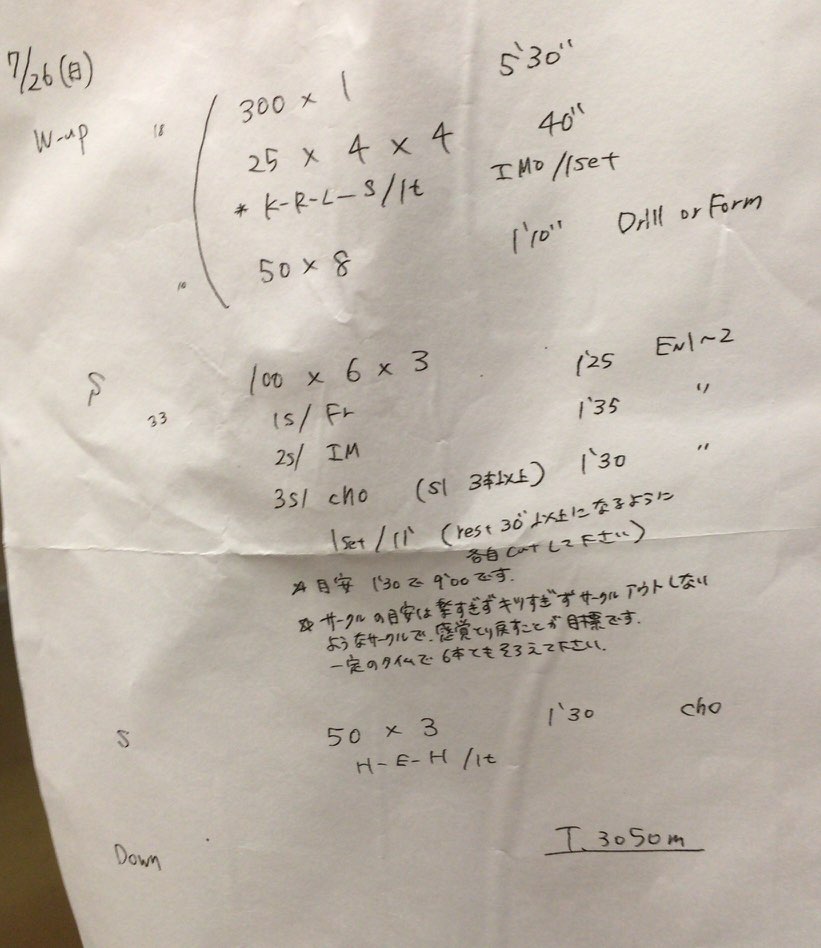 7/26(日)
W-up 18 300 × 1 5'30"
25 × 4 × 4 40"
* K-R-L-S/1t IMO/1set
10 50 × 8 1'10" Drill or Form
S 33 100 × 6 × 3 1'25 EN1~2
1S/ Fr 1'35 "
2S/ IM
3S/ cho (S1 3本以上) 1'30 "
1set/11' (rest 30"以上になるように
各自cutして下さい)
☆ 目安 1'30で9'00です.
☆ サークルの目安は楽すぎずキツすぎずサークルアウトしない
ようなサークルで、感覚とり戻すことが目標です.
一定のタイムで6本ともそろえて下さい.
S 50 × 3 1'30 cho
H-E-H /1t
Down
T. 3050m